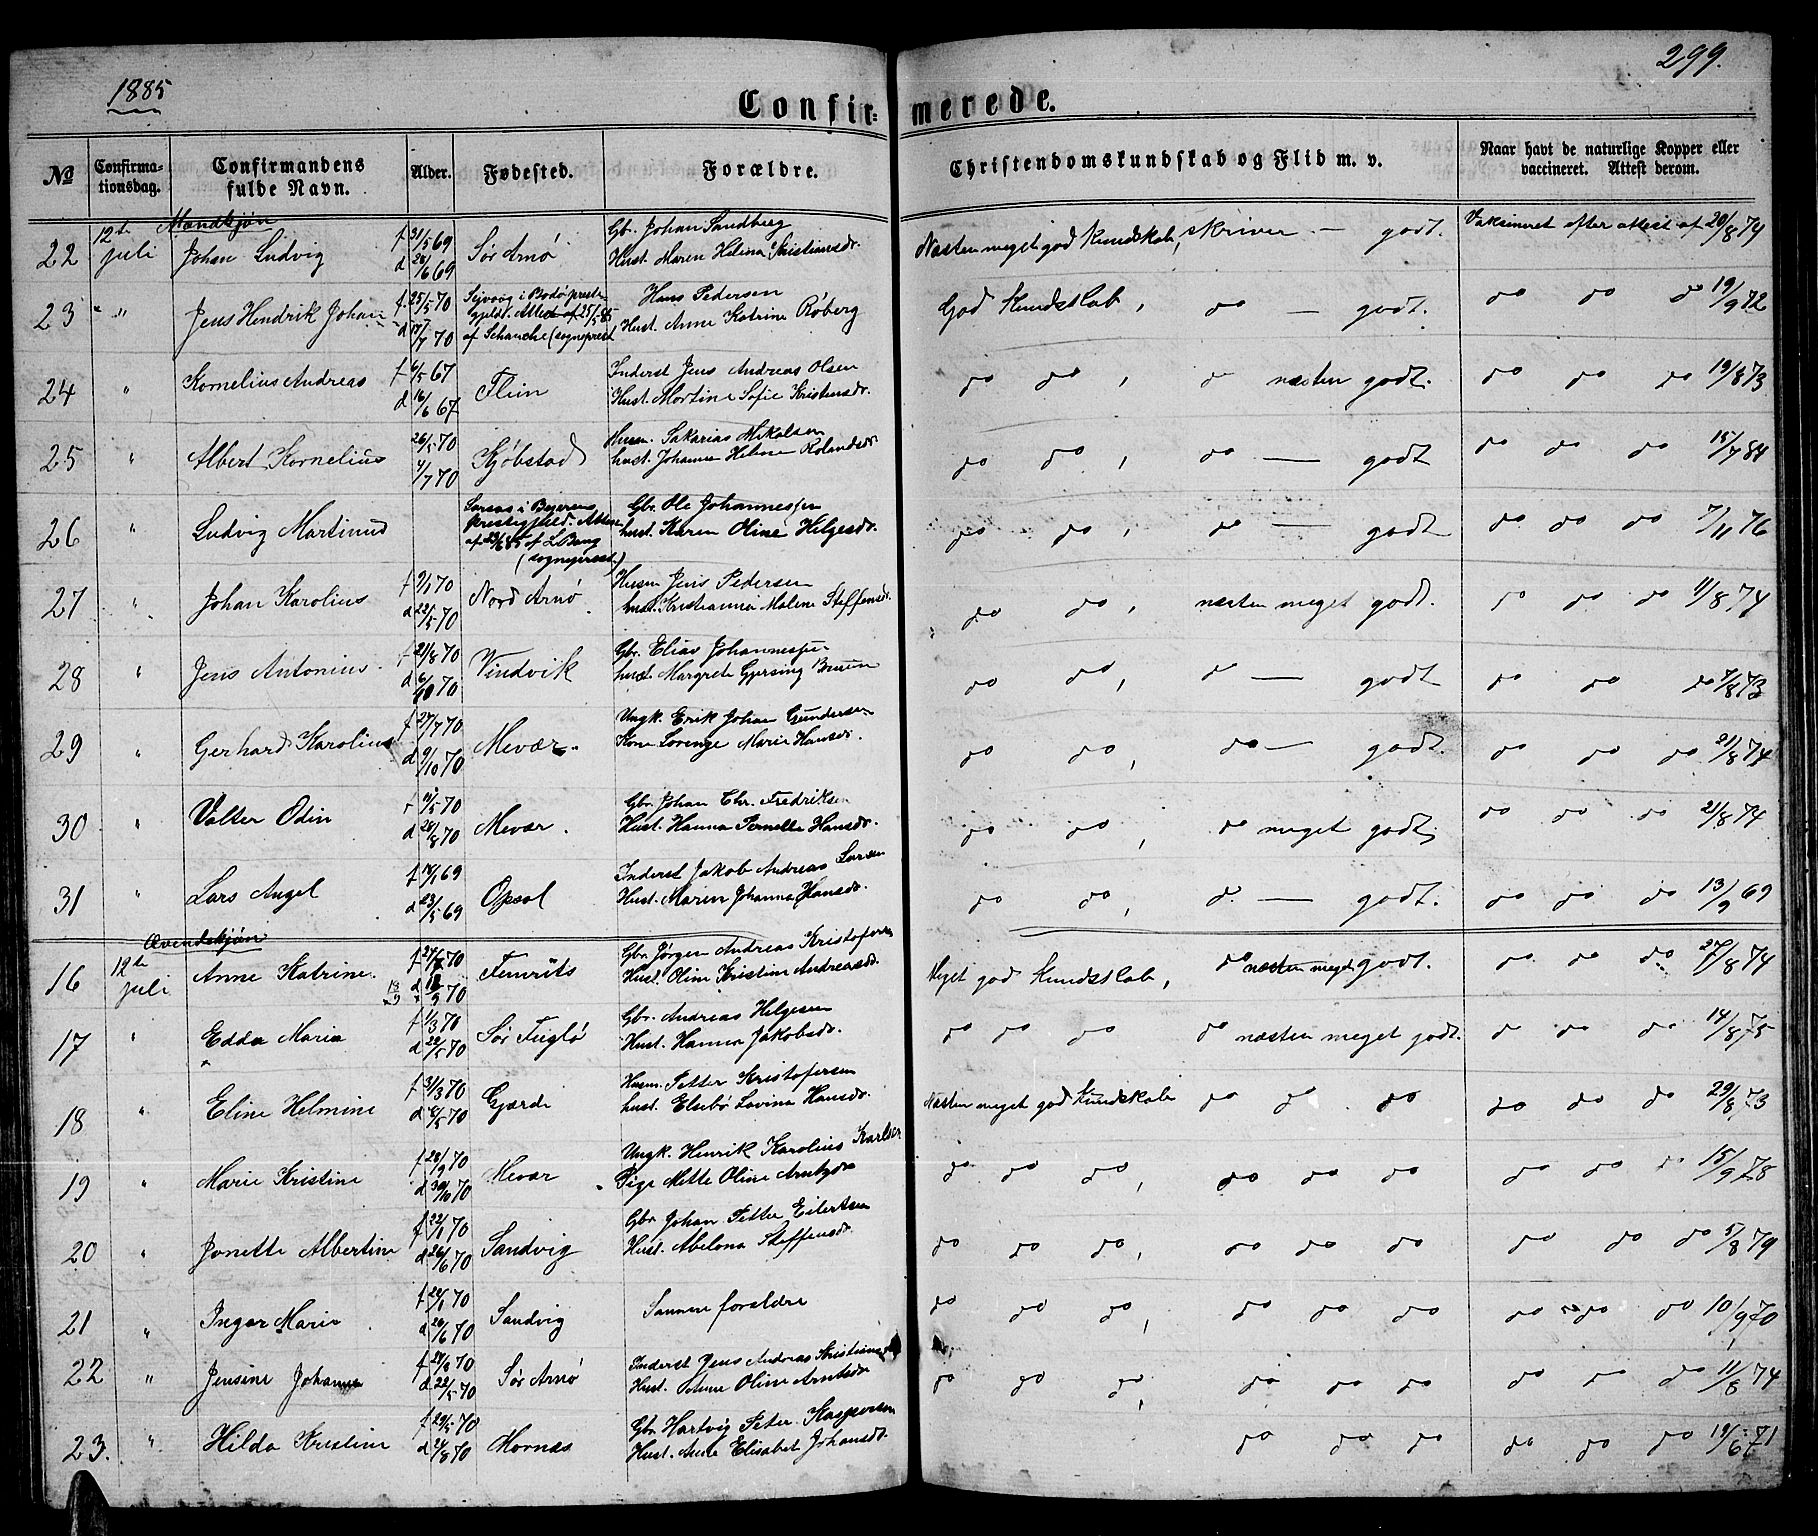 1885
299.
Confirmerede.
№ Confirmationsdag. Confirmandens fulde Navn. Alder. Fødested. Forældre. Christendomskundskab og Flid m. v. Naar havt de naturlige Kopper eller vaccineret. Attest derom.
Mandkjøn
22 12te juli Johan Ludvig f 31/5 69 Sør Arnø Gbr. Johan Sandberg Næsten meget god Kundskab, skriver — godt. Vaksineret efter attest af 20/8 74
d 20/6 69 Hust. Maren Helina Kristiansdr.
23 " " Jens Hendrik Johan f. 25/5 70 i Bodø præste- Hans Pedersen God Kundskab, do — godt. do do do 19/9 72
gjeld. Attest af 25/5 85
d 17/7 70 af Schanche (sogneprest Hust. Anne Katrine Røberg
24 " Kornelius Andreas f 6/5 67 Flein Inderst Jens Andreas Olsen do do, do næsten godt. do do do 19/8 73
d 16/6 67 Hust. Mortine Sofie Kristensdr.
25 " Albert Kornelius 26/5 70 Kjøbstad Husm. Sakarias Mikalsen do do, do — godt do do do 15/7 84
/7 70 hust. Johanna Helene Rolandsdr.
26 " Ludvig Martinus i Beierens Gbr. Ole Johannessen do do, do — godt do do do 7/11 76
prestegjeld. Attest hust. Karen Oline Helgesdr.
af 23/6 85 af L. Bang
(sogneprest.)
27 " Johan Karolius f 9/1 70 Nord Arnø Husm Jens Pedersen do do, næsten meget godt. do do do 11/8 74
d 22/5 70 hust. Kristianna Malene Steffensdr.
28 " Jens Antonius. f 21/8 70 Vindvik Gbr. Elias Johannessen do do, do — godt do do do 7/8 73
d 6/10 70 hust. Margrete Gjersing Bruun
29 " Gerhard Karolius f 27/7 70 Mevær. Ungk. Erik Johan Gundersen do do, do — godt. do do do 21/8 74
d 9/10 70 Kone Lorense Marie Hansdr.
30 " Valter Odin /5 70 Mevær. Gbr. Johan Chr. Fredriksen do do, do meget godt; do do do 21/8 74
d 28/8 70 Hust. Hanna Pernelle Hansdr.
31 " Lars Angel f 14/1 69 Opsal Inderst Jakob Andreas Larsen do do, do. — godt. do do do 13/9 69
d 23/5 69 Hust. Maren Johanna Hansdr.
Qvendekjøn
16 12te juli Anne Katrine. f 27/8 70 Gbr. Jørgen Andreas Kristofersen Meget god Kundskab, do næsten meget godt. do do do 27/8 74
18/9 d 18/9 70 Hust. Oline Kristine Andreasdr.
17 " Edda Maria f 1/3 70 Sør Fuglø Gbr. Andreas Helgesen do do do do næsten meget godt. do do do 14/8 75
d 22/5 70 Hust. Hanna Jakobsdr.
18 " Eline Helmine f 31/3 70 Gjærde Husm. Petter Kristofersen Næsten meget god Kundskab do do do do do do 29/8 73
d 8/5 70 hust. Elsebø Lovina Hansdr.
19 " Marie Kristine f 28/9 70 Mevær Ungk. Henrik Karolius Karlsen do do do, do do do do do do 15/9 78
d 30/10 70 Pige Mette Oline Arntsdr
20 " Jonette Albertine f 22/1 70 Sandvig Gbr Johan Petter Eilertsen do do do, do do do do do do 5/8 79
d 26/6 70 Hust. Abelona Steffensdr.
21 " Inger Marie f 22/1 70 Sandvig Samme forældre do do do, do do do do do do 10/9 70
d 26/6 70
22 " Jensine Johanna f 24/3 70 Sør Arnø Inderst Jens Andreas Kristiansen do do do, do do do do do do 11/8 74
d 22/5 70 Hust. Oline Arntsdr
23. " Hilda Kristine f 29/5 70 Hornæs Gbr. Hartvig Peter Kaspersen do do do do do do 19/6 71
d 21/8 70 Hust. Anne Elisabet Johansdr.